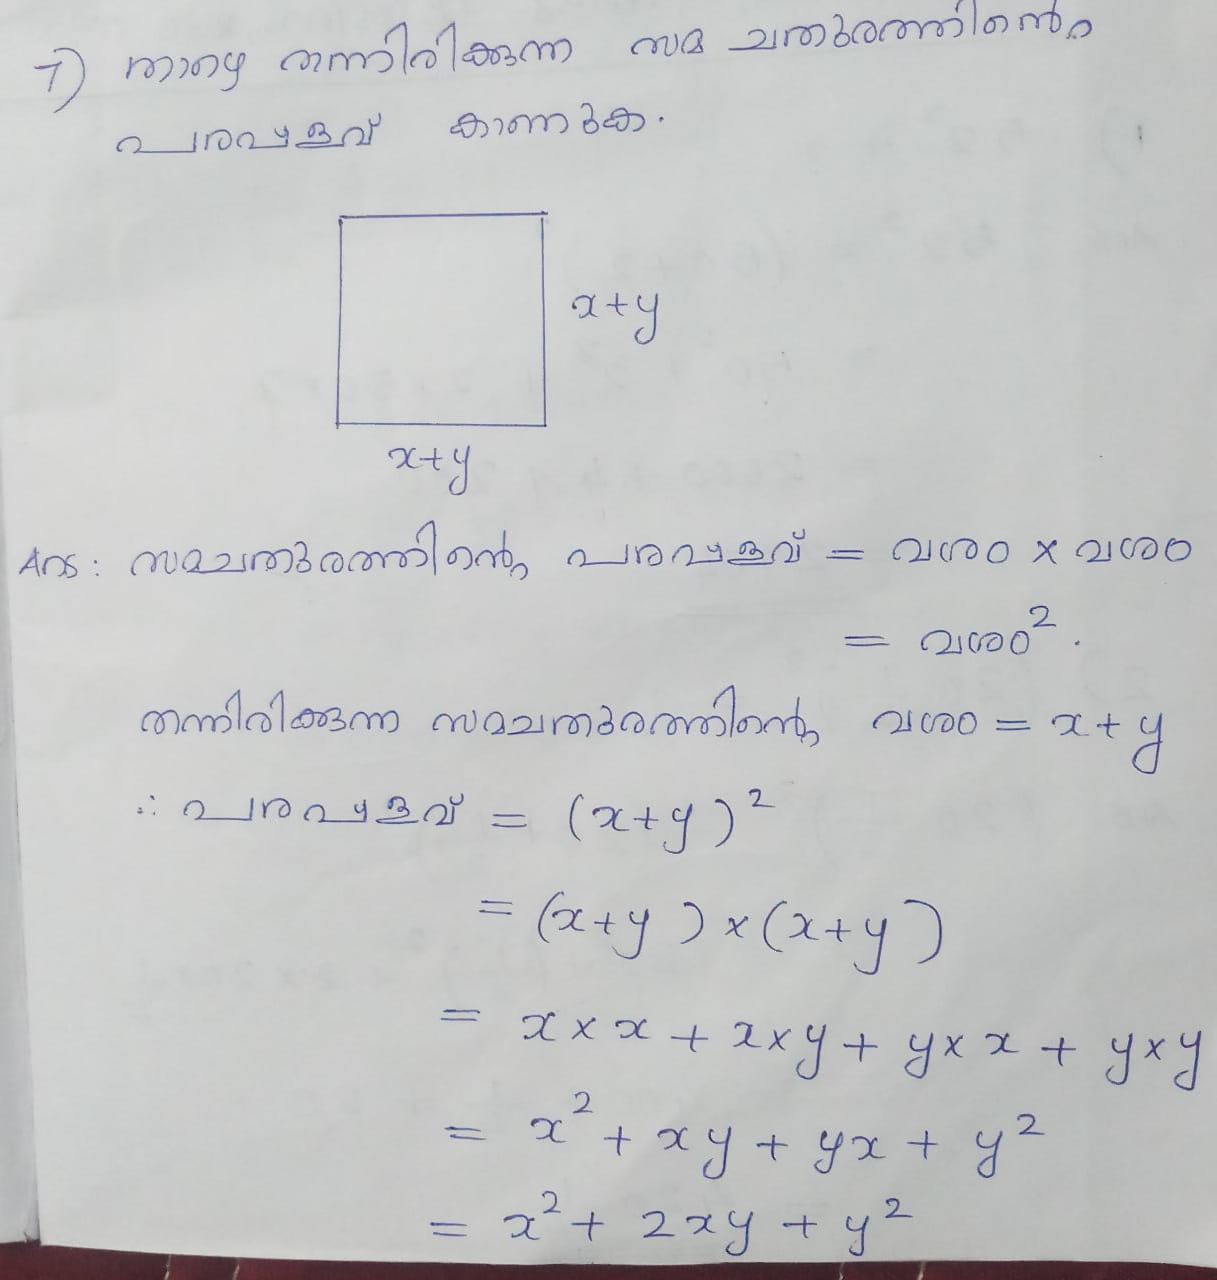 7) താഴെ തന്നിരിക്കുന്ന സമ ചതുരത്തിന്റെ
പരപ്പളവ് കാണുക.
x+y
x+y
Ans: സമചതുരത്തിന്റെ പരപ്പളവ് = വശം × വശം
= വശം².
തന്നിരിക്കുന്ന സമചതുരത്തിന്റെ വശം = x+y
∴ പരപ്പളവ് = (x+y)²
= (x+y) × (x+y)
= x × x + x × y + y × x + y × y
= x² + xy + yx + y²
= x² + 2xy + y²